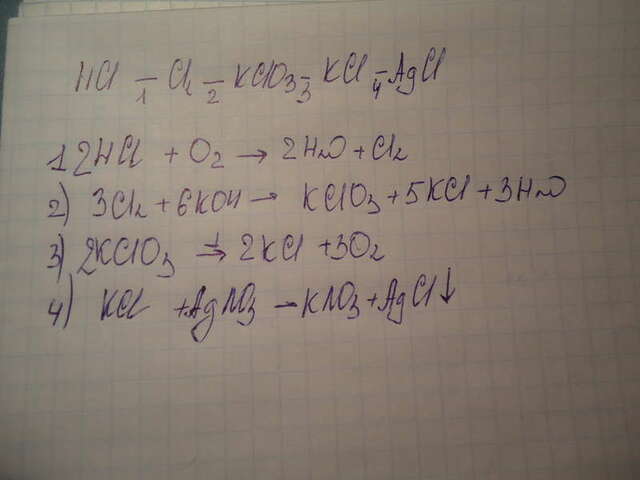 HCl –1 Cl2 –2 KClO3 –3 KCl –4 AgCl
1 2HCl + O2 → 2H2O + Cl2
2) 3Cl2 + 6KOH → KClO3 + 5KCl + 3H2O
3) 2KClO3 t→ 2KCl + 3O2
4) KCl + AgNO3 – KNO3 + AgCl↓